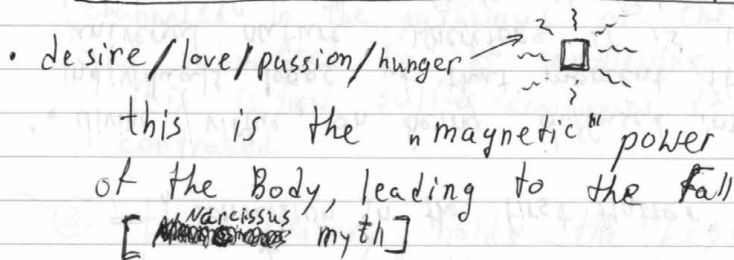 • desire/love/passion/hunger
this is the "magnetic" power
of the Body, leading to the Fall
[Narcissus myth]